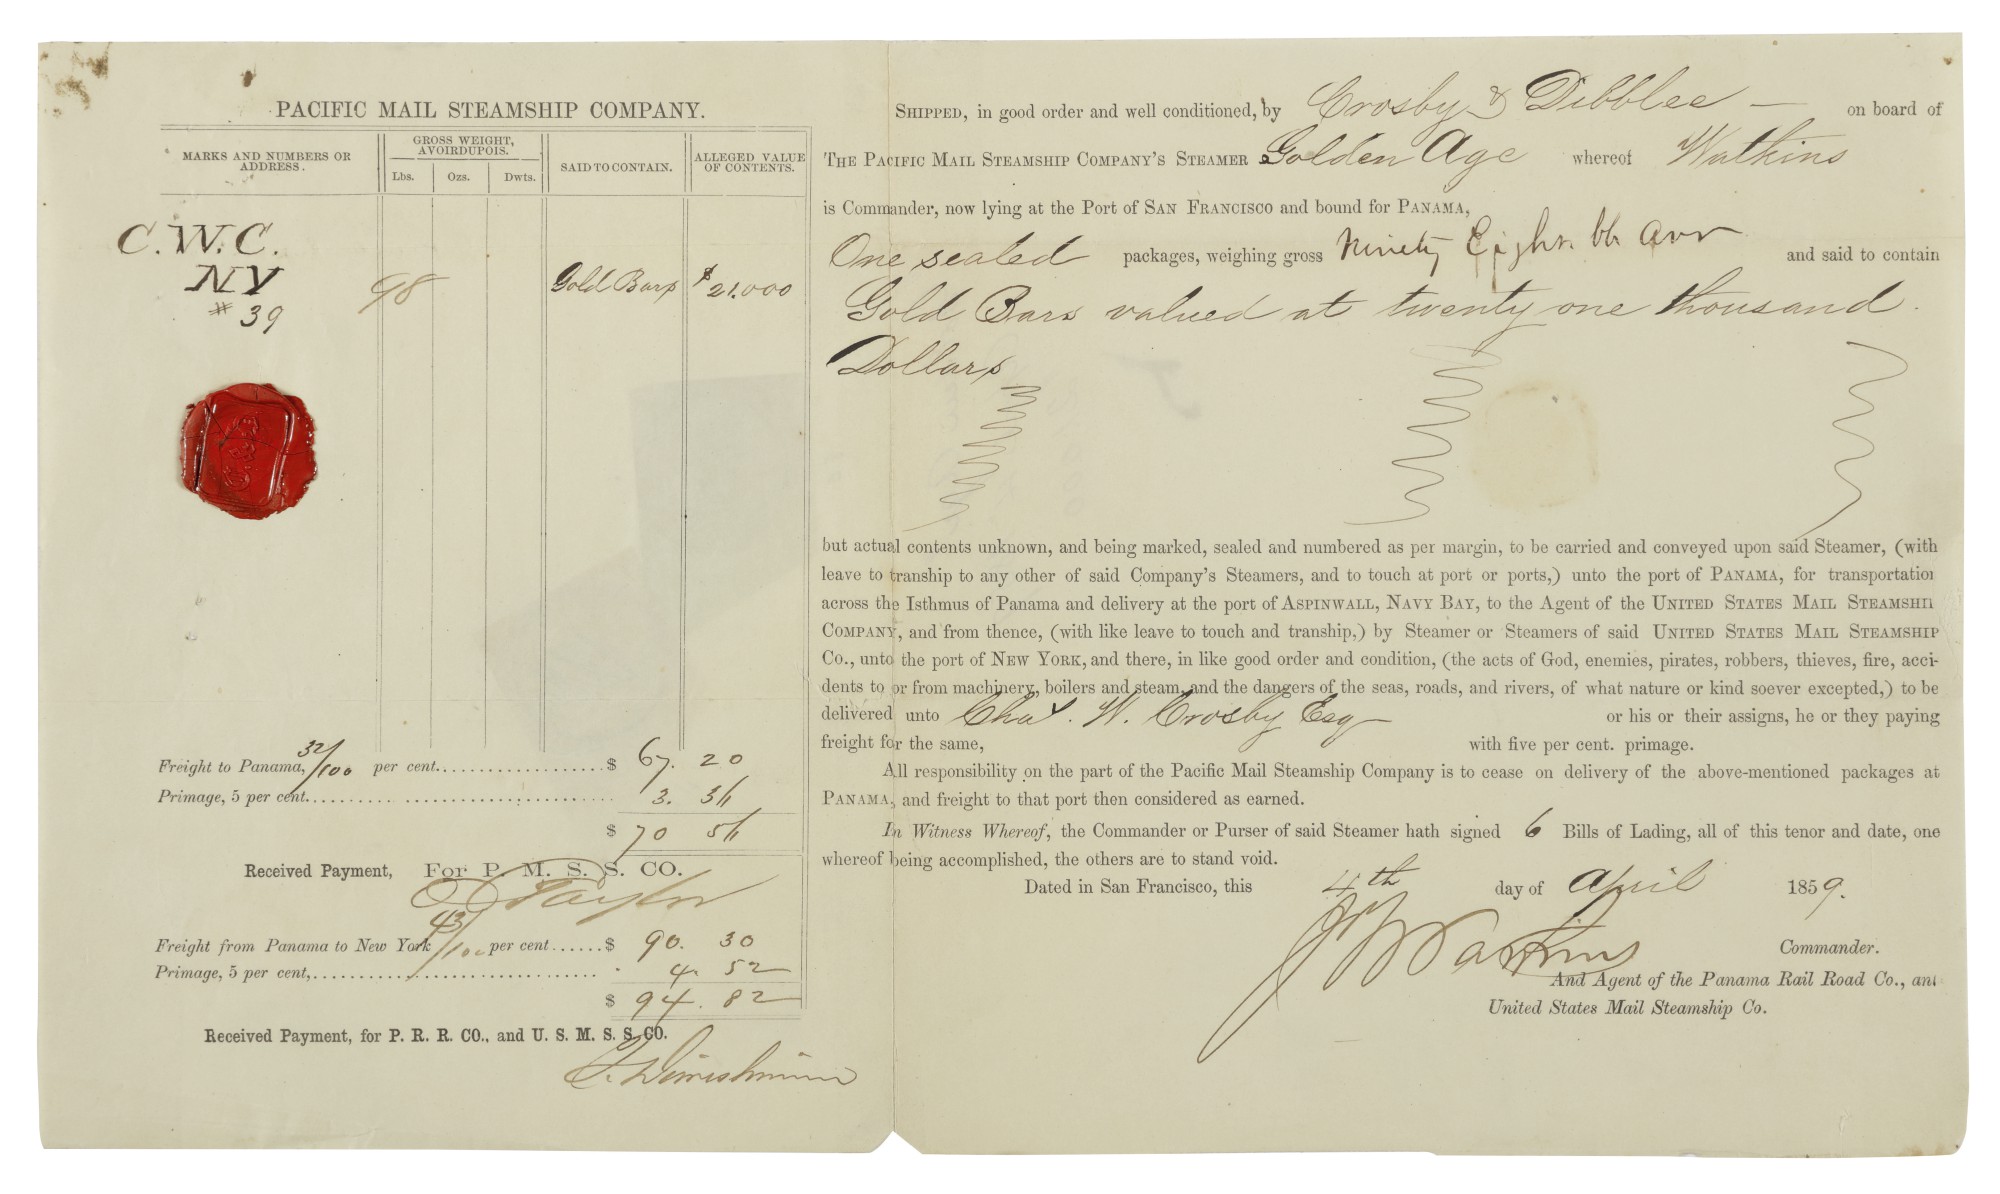 PACIFIC MAIL STEAMSHIP COMPANY.
MARKS AND NUMBERS OR ADDRESS.
GROSS WEIGHT, AVOIRDUPOIS.
Lbs. Ozs. Dwts.
SAID TO CONTAIN.
ALLEGED VALUE OF CONTENTS.
C.W.C.
NY
# 39
98 Gold Bars $21.000
Freight to Panama, 32/100 per cent. $ 67. 20
Primage, 5 per cent. 3. 36
$ 70 56
Received Payment, For P. M. S. S. CO.
Taylor
Freight from Panama to New York 43/100 per cent $ 90. 30
Primage, 5 per cent, 4. 52
$ 94. 82
Received Payment, for P. R. R. CO., and U. S. M. S. S. CO.
SHIPPED, in good order and well conditioned, by Crosby & Dibblee — on board of
THE PACIFIC MAIL STEAMSHIP COMPANY'S STEAMER Golden Age whereof Watkins
is Commander, now lying at the Port of SAN FRANCISCO and bound for PANAMA,
One sealed packages, weighing gross Ninety Eight lb avr and said to contain
Gold Bars valued at twenty one thousand
Dollars
but actual contents unknown, and being marked, sealed and numbered as per margin, to be carried and conveyed upon said Steamer, (with
leave to tranship to any other of said Company's Steamers, and to touch at port or ports,) unto the port of PANAMA, for transportation
across the Isthmus of Panama and delivery at the port of ASPINWALL, NAVY BAY, to the Agent of the UNITED STATES MAIL STEAMSHIP
COMPANY, and from thence, (with like leave to touch and tranship,) by Steamer or Steamers of said UNITED STATES MAIL STEAMSHIP
Co., unto the port of NEW YORK, and there, in like good order and condition, (the acts of God, enemies, pirates, robbers, thieves, fire, acci-
dents to or from machinery, boilers and steam, and the dangers of the seas, roads, and rivers, of what nature or kind soever excepted,) to be
delivered unto Chas. W. Crosby Esq — or his or their assigns, he or they paying
freight for the same, with five per cent. primage.
All responsibility on the part of the Pacific Mail Steamship Company is to cease on delivery of the above-mentioned packages at
PANAMA, and freight to that port then considered as earned.
In Witness Whereof, the Commander or Purser of said Steamer hath signed 6 Bills of Lading, all of this tenor and date, one
whereof being accomplished, the others are to stand void.
Dated in San Francisco, this 4th day of April 1859.
Watkins Commander.
And Agent of the Panama Rail Road Co., and
United States Mail Steamship Co.